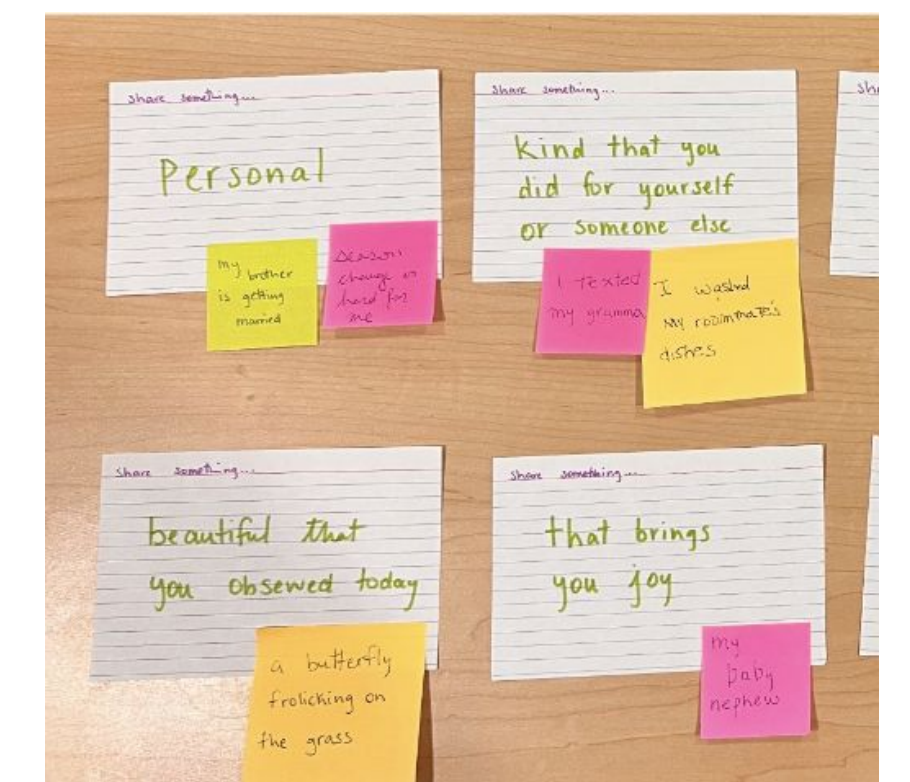 Share something...
Personal
my brother
is getting
married
season
change is
hard for
me
Share something...
Kind that you
did for yourself
or someone else
I texted
my gramma
I washed
My roommate's
dishes
Sha
Share something...
beautiful that
you observed today
a butterfly
frolicking on
the grass
Share something...
that brings
you joy
my
baby
nephew